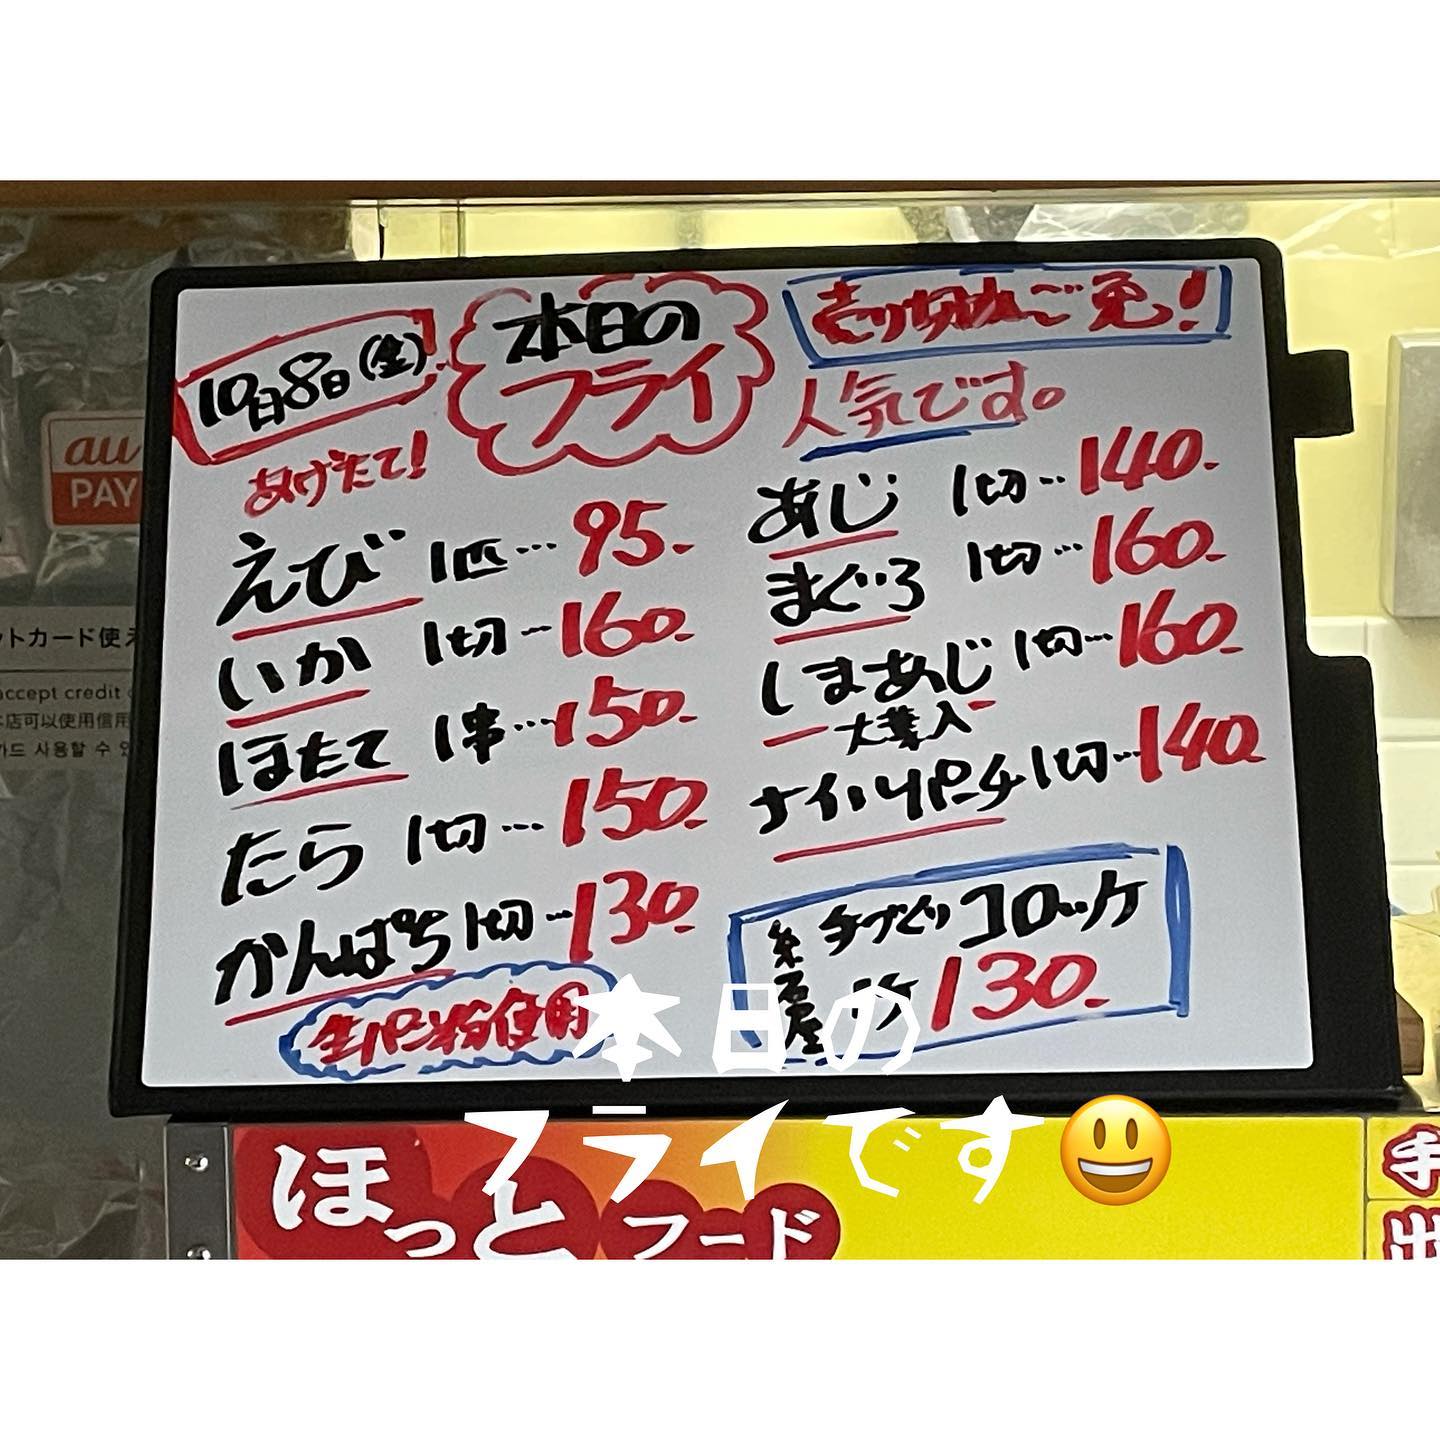 10月8日(金)
本日の
フライ
売り切れご免!
人気です。
あげたて!
えび 1匹…95.
いか 1切…160.
ほたて 1串…150.
たら 1切…150.
かんぱち 1切…130.
生パン粉使用
あじ 1切…140.
まぐろ 1切…160.
しまあじ 1切…160.
大葉入
ナイルパーチ 1切…140.
手づくりコロッケ
130.
本日の
フライです😃
au
PAY
ットカード使え
accept credit
店可以使用信用
카드 사용할 수
ほっとフード
手
出